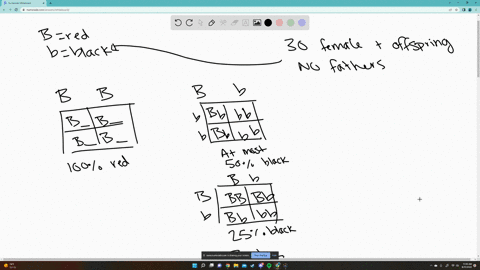 B=red
b=black
30 female + offspring
No fathers
B B
B_ B_
B_ B_
100% red
B b
b Bb bb
b Bb bb
At most
50% black
B b
B BB Bb
b Bb bb
25% black